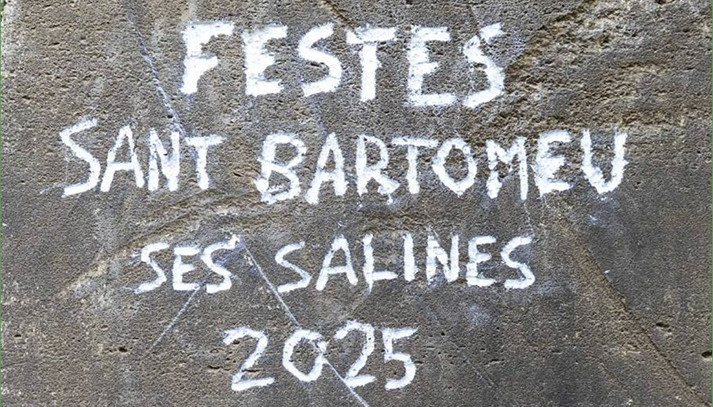 FESTES
SANT BARTOMEU
SES SALINES
2025